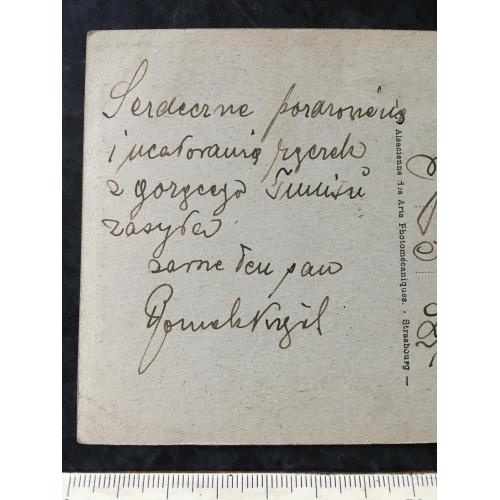 Serdeczne pozdrowienia
i ucałowania rączek
z gorącego Tunisu
zasyła
same ten pan
Alsacienne des Arts Photomécaniques. - Strasbourg